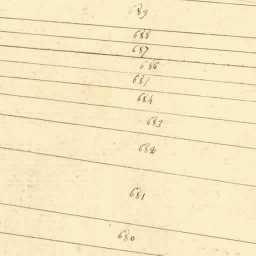 689
688
687
686
685
684
683
682
681
680